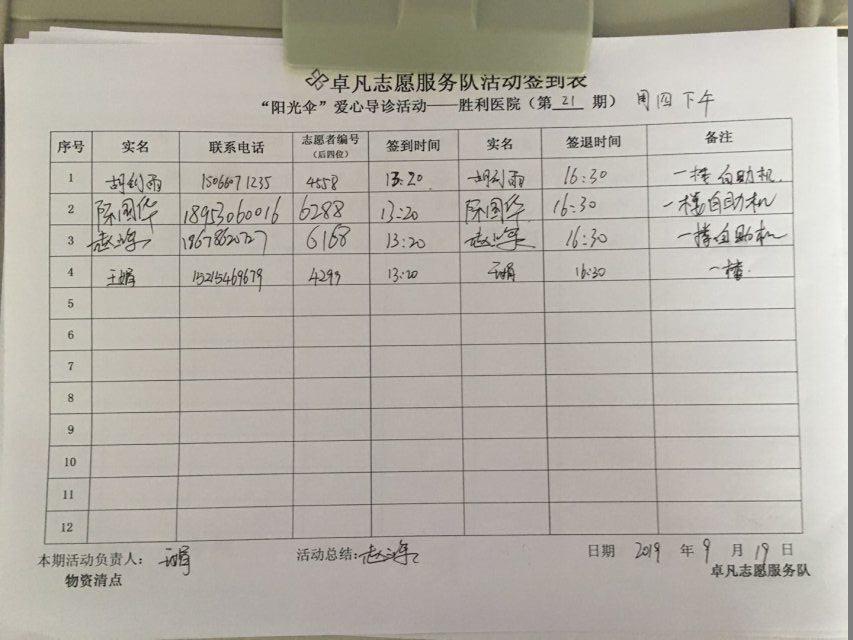 卓凡志愿服务队活动签到表
“阳光伞”爱心导诊活动——胜利医院（第 21 期） 周四下午
序号 实名 联系电话 志愿者编号（后四位） 签到时间 实名 签退时间 备注
1 胡利雨 15066071235 4558 13:20 胡利雨 16:30 一楼自助机.
2 陈国华 18953060016 6288 13:20 陈国华 16:30 一楼自助机
3 19678620727 6168 13:20 16:30 一楼自助机
4 王娟 15215469679 4299 13:20 王娟 16:30 一楼.
5
6
7
8
9
10
11
12
本期活动负责人： 王娟 活动总结： 日期 2019 年 9 月 19 日
物资清点 卓凡志愿服务队